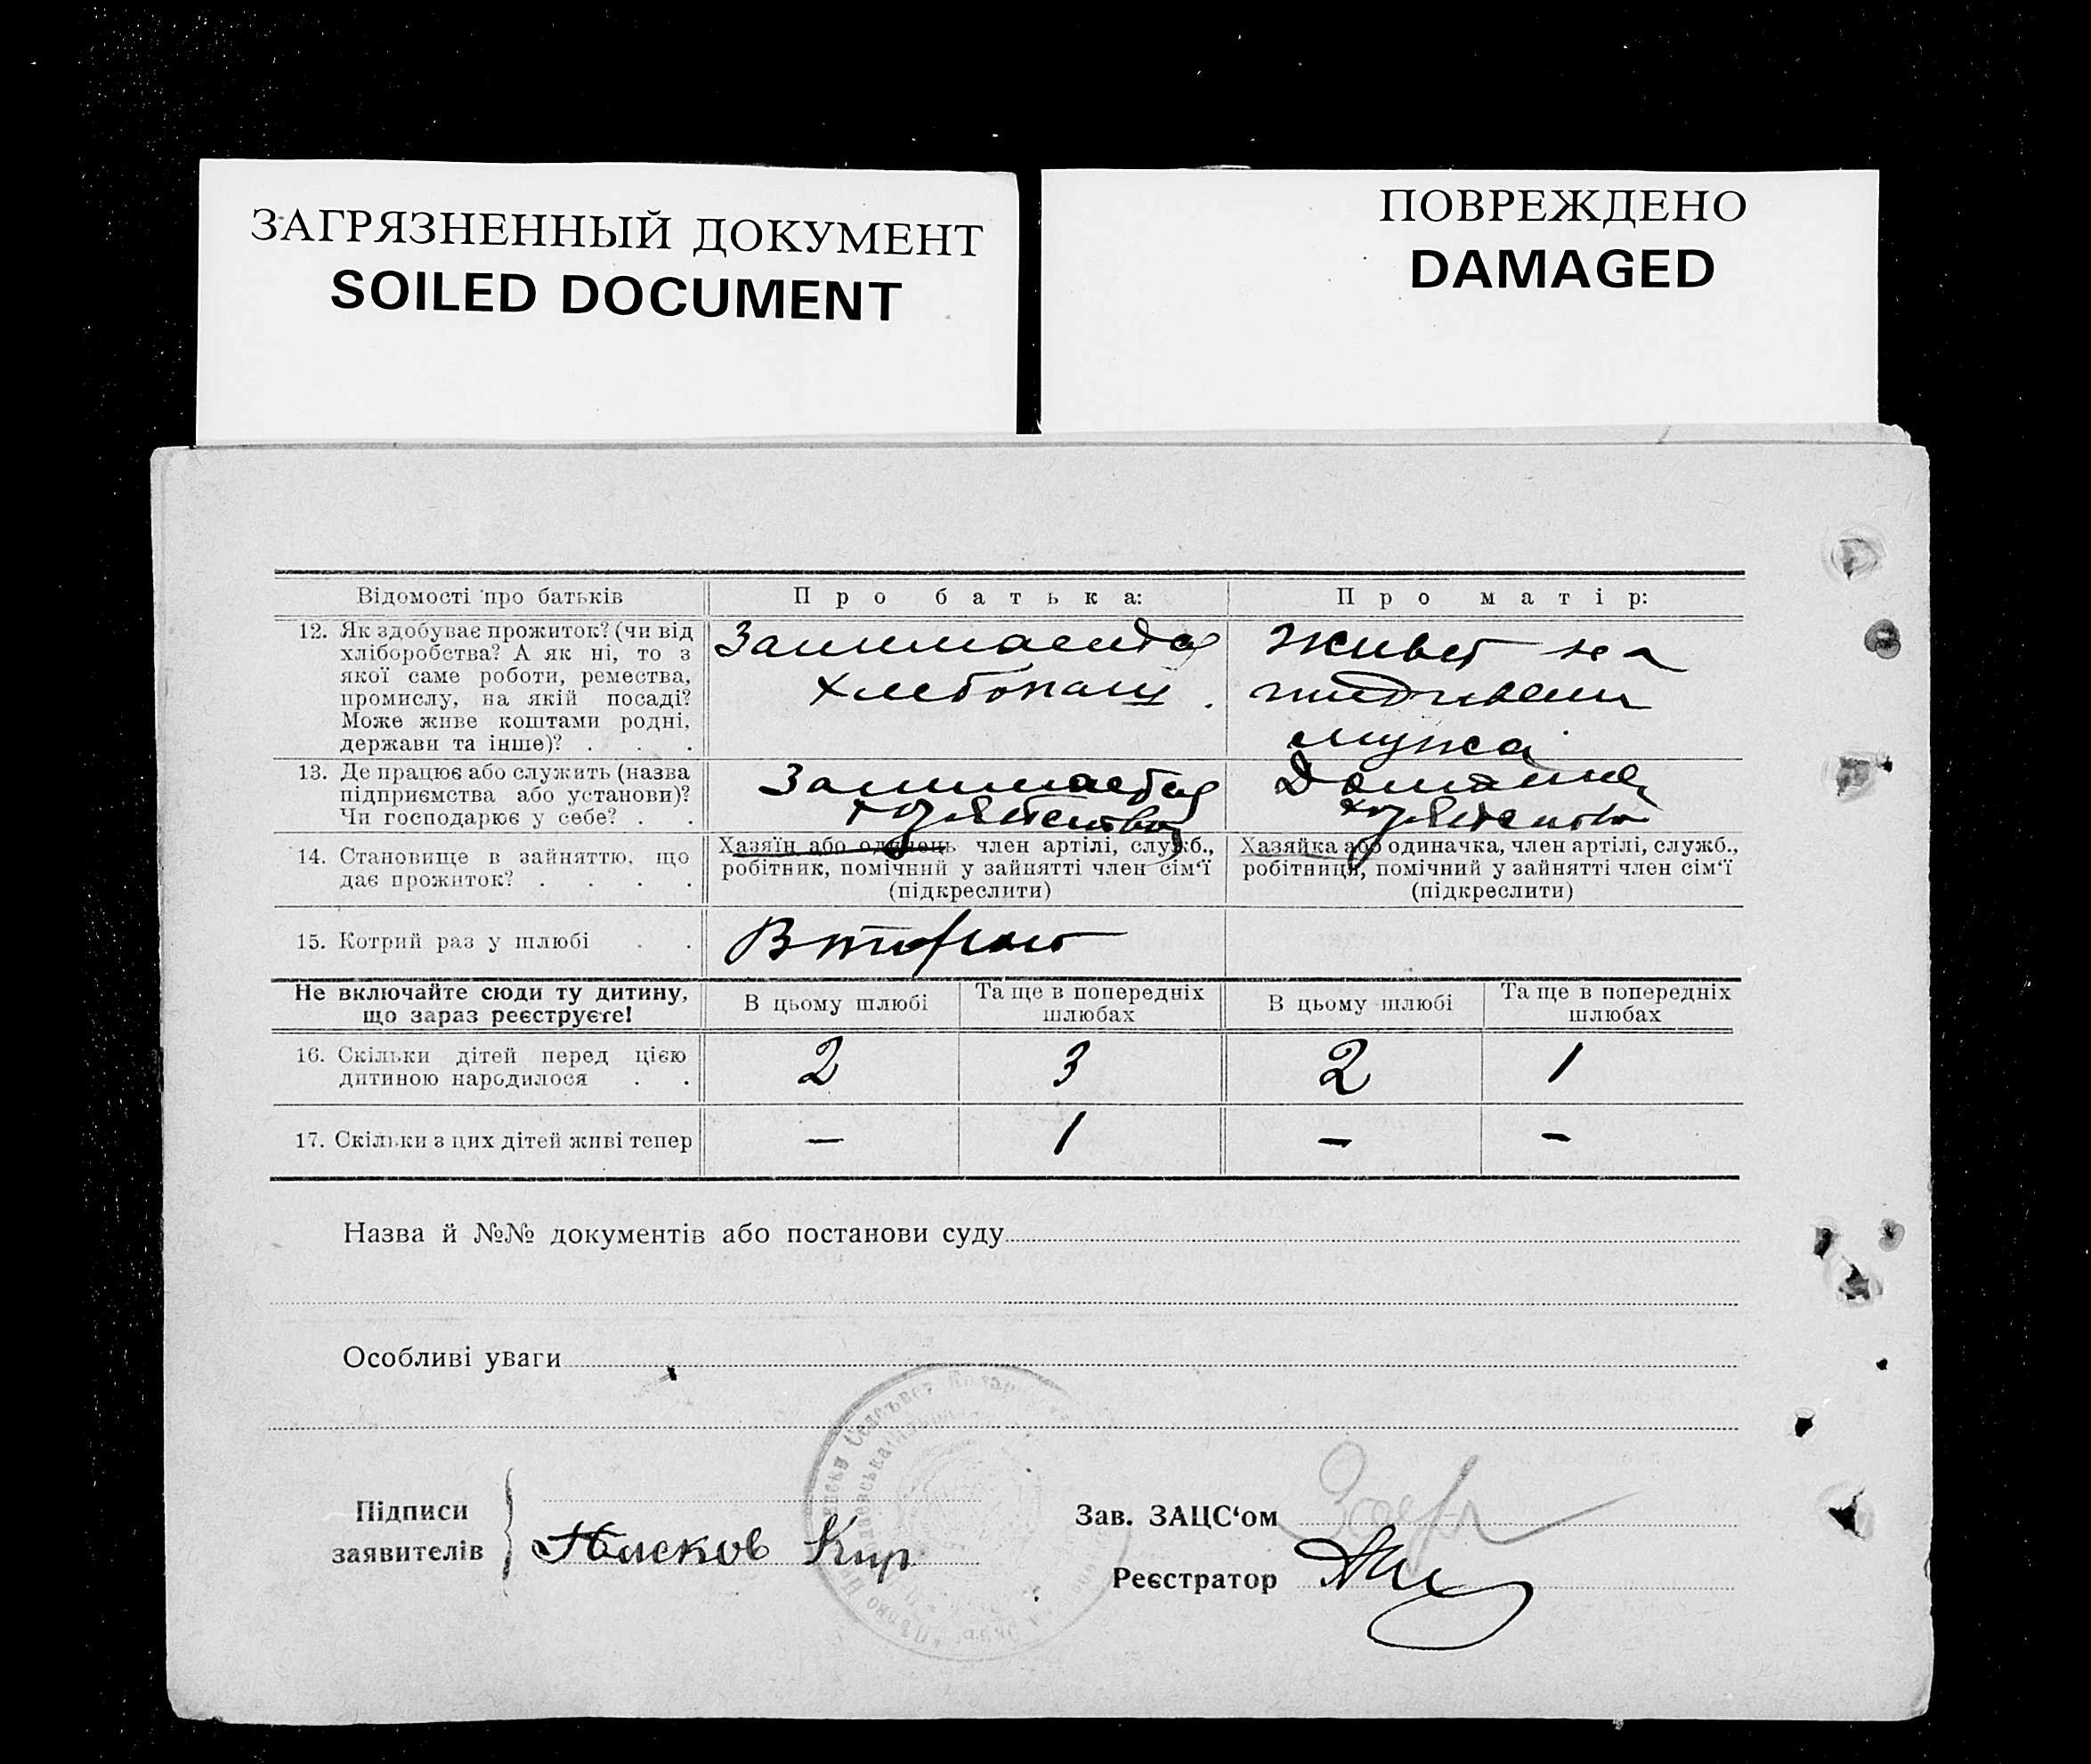 ЗАГРЯЗНЕННЫЙ ДОКУМЕНТ
SOILED DOCUMENT
ПОВРЕЖДЕНО
DAMAGED
Відомості про батьків
Про батька:
Про матір:
12. Як здобуває прожиток? (чи від
хліборобства? А як ні, то з
якої саме роботи, ремества,
промислу, на якій посаді?
Може живе коштами родні,
держави та інше)? . . .
Занимается
хлебопаш.
Живет на
иждивени
мужа
13. Де працює або служить (назва
підприємства або установи)?
Чи господарює у себе? . .
Занимается
Домашне
14. Становище в зайняттю, що
дає прожиток? . . . .
Хазяїн або одинець член артілі, служб.,
робітник, помічний у зайнятті член сім'ї
(підкреслити)
Хазяйка або одиначка, член артілі, служб.,
робітниця, помічний у зайнятті член сім'ї
(підкреслити)
15. Котрий раз у шлюбі . .
Второй
Не включайте сюди ту дитину,
що зараз реєструєте!
В цьому шлюбі
Та ще в попередніх
шлюбах
В цьому шлюбі
Та ще в попередніх
шлюбах
16. Скільки дітей перед цією
дитиною народилося . .
2
3
2
1
17. Скільки з цих дітей живі тепер
—
1
—
—
Назва й №№ документів або постанови суду
Особливі уваги
Підписи
заявителів
Кир
Зав. ЗАЦС'ом
Реєстратор